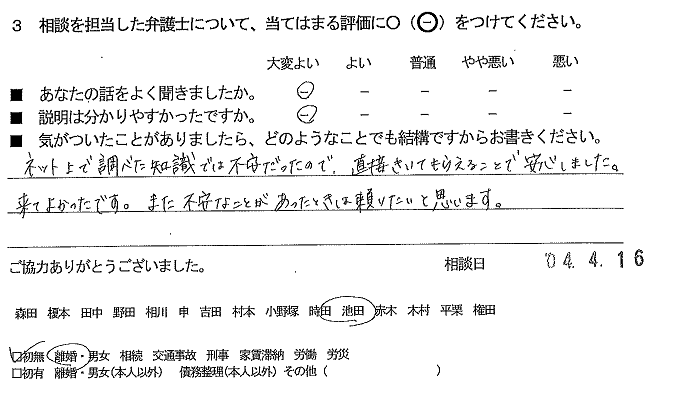 3 相談を担当した弁護士について、当てはまる評価に○（⊖）をつけてください。
大変よい よい 普通 やや悪い 悪い
■ あなたの話をよく聞きましたか。 － － － － －
■ 説明は分かりやすかったですか。 － － － － －
■ 気がついたことがありましたら、どのようなことでも結構ですからお書きください。
ネット上で調べた知識では不安だったので、直接きいてもらえることで安心しました。
来てよかったです。また不安なことがあったときは頼りたいと思います。
ご協力ありがとうございました。 相談日 '04. 4. 16
森田 榎本 田中 野田 相川 申 吉田 村本 小野塚 時田 池田 赤木 木村 平栗 権田
□初無 離婚・男女 相続 交通事故 刑事 家賃滞納 労働 労災
□初有 離婚・男女(本人以外) 債務整理(本人以外) その他 ( )